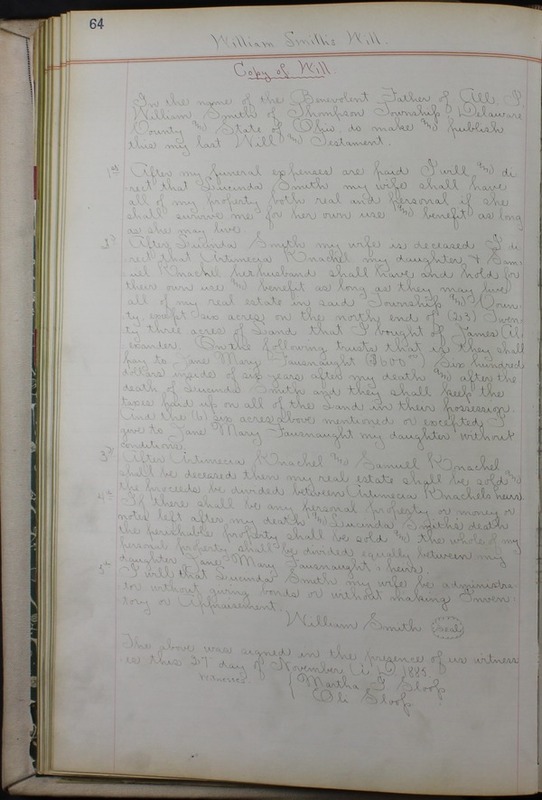 64
William Smith's Will.
Copy of Will.
In the name of the Benevolent Father of All. I,
William Smith of Thompson Township Delaware
County and State of Ohio, do make and publish
this my last Will and Testament.
1st After my funeral expenses are paid I will and di
rect that Lucinda Smith my wife shall have
all of my property both real and personal if she
shall survive me for her own use and benefit as long
as she may live
2d After Lucinda Smith my wife is deceased I di
rect that Artimecia Knachel my daughter & Sam-
uel Knachel her husband shall have and hold for
their own use and benefit as long as they may live
all of my real estate in said Township and Coun-
ty, except six acres on the north end of (23) Twen
ty three acres of Land that I bought of James Al
exander. On the following trusts that is they shall
pay to Jane Mary Fausnaught ($600.00) Six hundred
dollars inside of six years after my death and after the
death of Lucinda Smith and they shall keep the
taxes paid up on all of the Land in their possession.
And the (6) six acres above mentioned or excepted I
give to Jane Mary Fausnaught my daughter without
conditions.
3d After Artimecia Knachel and Samuel Knachel
shall be deceased then my real estate shall be sold and
the proceeds be divided between Artimecia Knachels heirs
4th If there shall be any personal property or money or
notes left after my death and Lucinda Smiths death
the perishable property shall be sold and the whole of my
personal property shall be divided equally between my
daughter Jane Mary Fausnaught's heirs.
5th I will that Lucinda Smith my wife be administra-
tor without giving bonds or without making Inven-
tory or Appraisement.
William Smith (seal)
The above was signed in the presence of us witness
es this 27 day of November A.D. 1885
Witnesses { Martha J Sloop
Oli Sloop